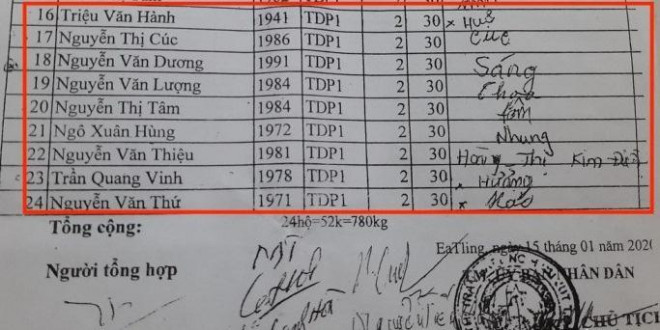 16 Triệu Văn Hành 1941 TDP1 2 30 x Huệ
17 Nguyễn Thị Cúc 1986 TDP1 2 30 Cúc
18 Nguyễn Văn Dương 1991 TDP1 2 30 Sáng
19 Nguyễn Văn Lượng 1984 TDP1 2 30
20 Nguyễn Thị Tâm 1984 TDP1 2 30
21 Ngô Xuân Hùng 1972 TDP1 2 30 Nhung
22 Nguyễn Văn Thiệu 1981 TDP1 2 30 Thị Kim
23 Trần Quang Vinh 1978 TDP1 2 30 x Hường
24 Nguyễn Văn Thứ 1971 TDP1 2 30 x
Tổng cộng: 24hộ=52k=780kg
EaTling, ngày 15 tháng 01 năm 2020
Người tổng hợp TM. ỦY BAN NHÂN DÂN
CHỦ TỊCH